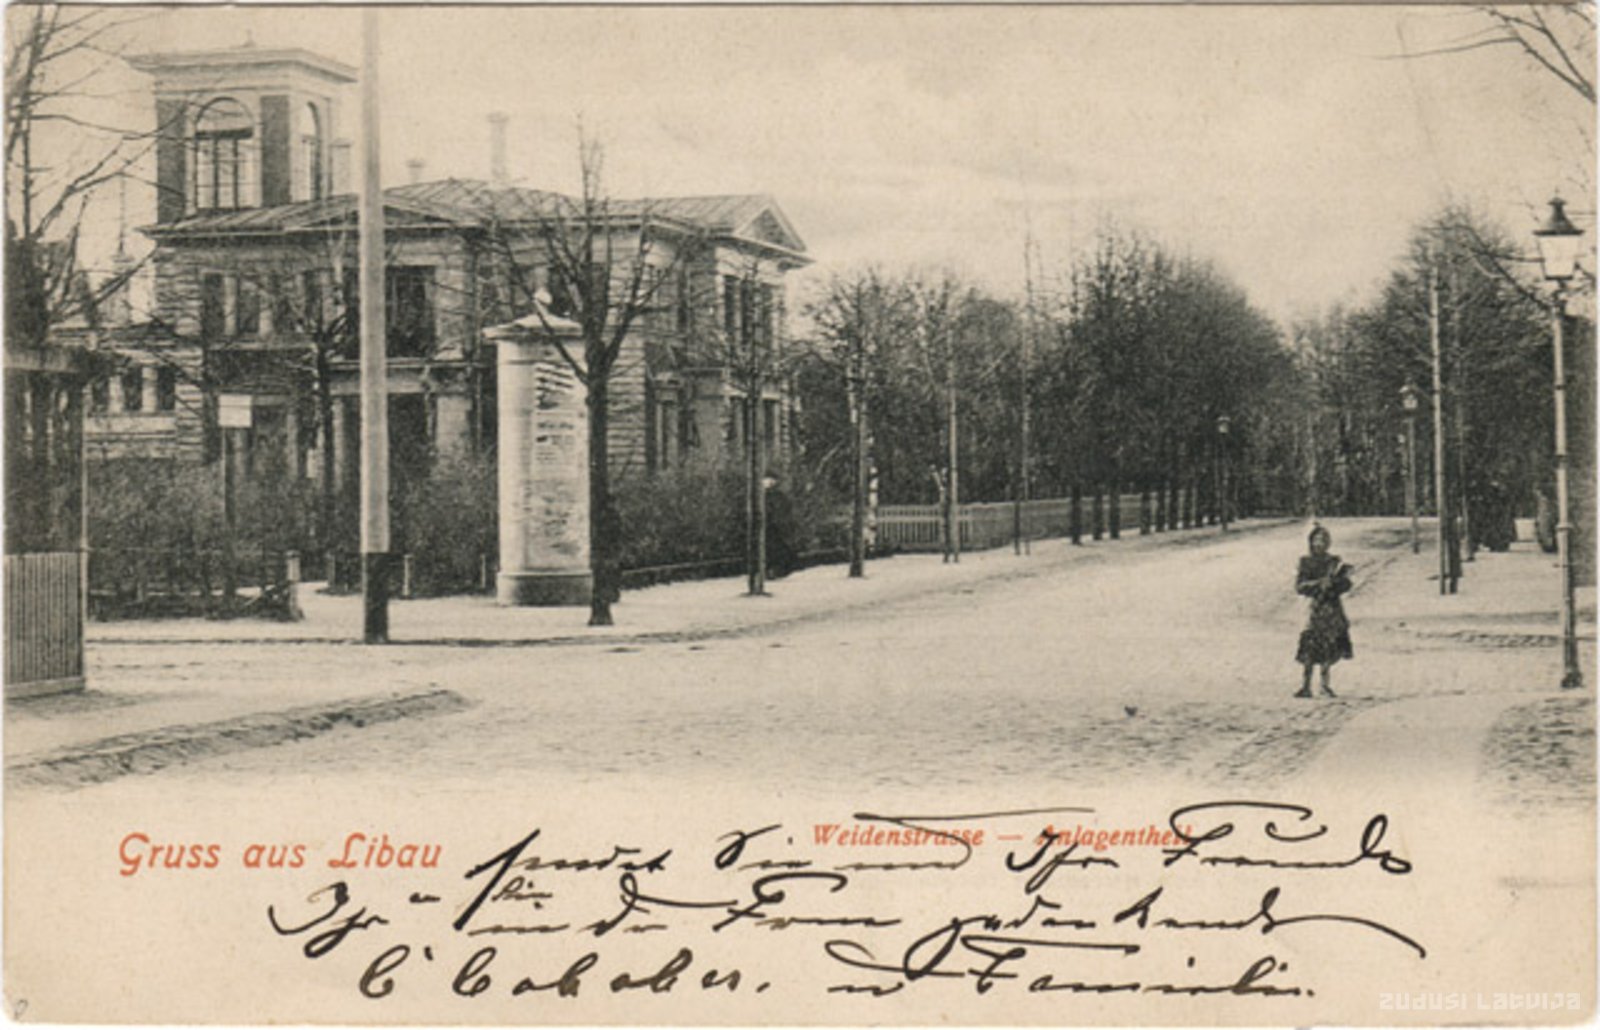 Gruss aus Libau
Weidenstrasse — Anlagentheil
sendet Sie und Ihr Freund
Ihr in der Ferne gedenkend
u Familie.
ZUDUSI LATVIJA